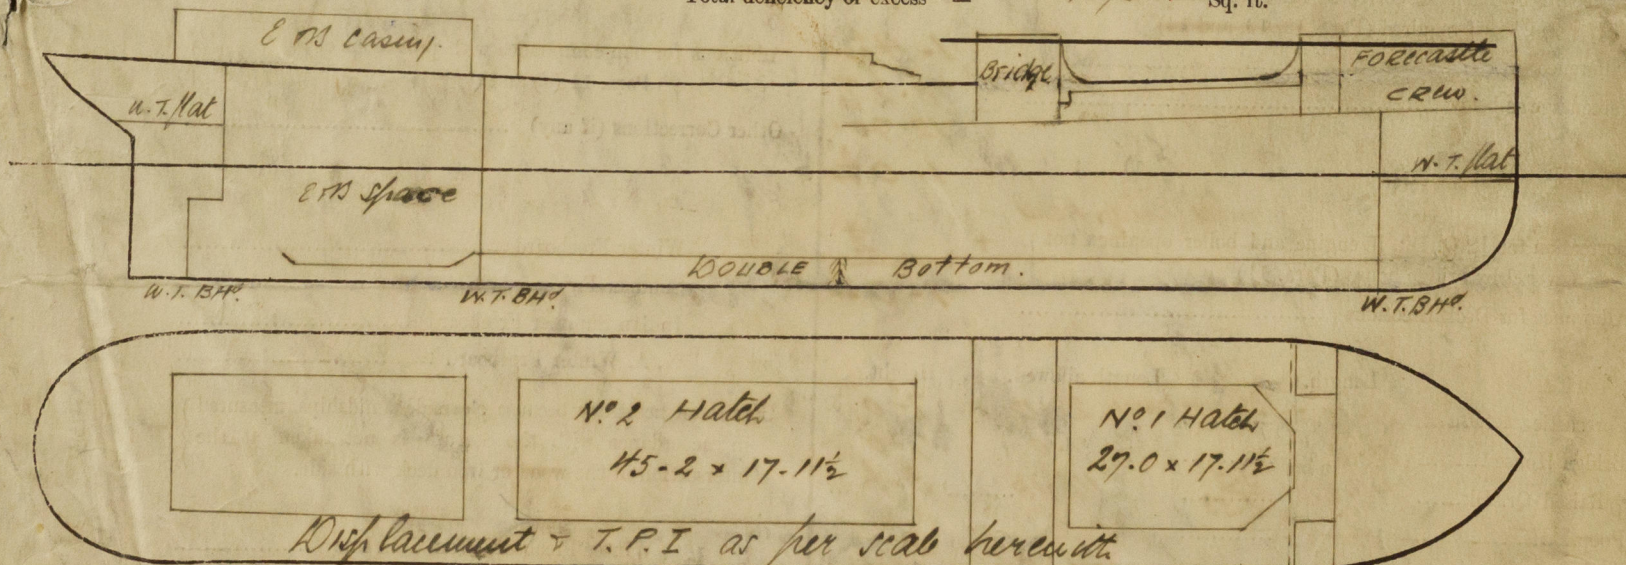 Total deficiency or excess = Sq. ft.
E & B Casing.
Bridge
Forecastle
Crew.
W.T. flat
W.T. flat
E & B Space
Double Bottom.
W.T. BHd.
W.T. BHd.
W.T. BHd.
No. 2 Hatch
45-2 x 17-11½
No. 1 Hatch
27.0 x 17.11½
Displacement & T.P.I as per scale herewith